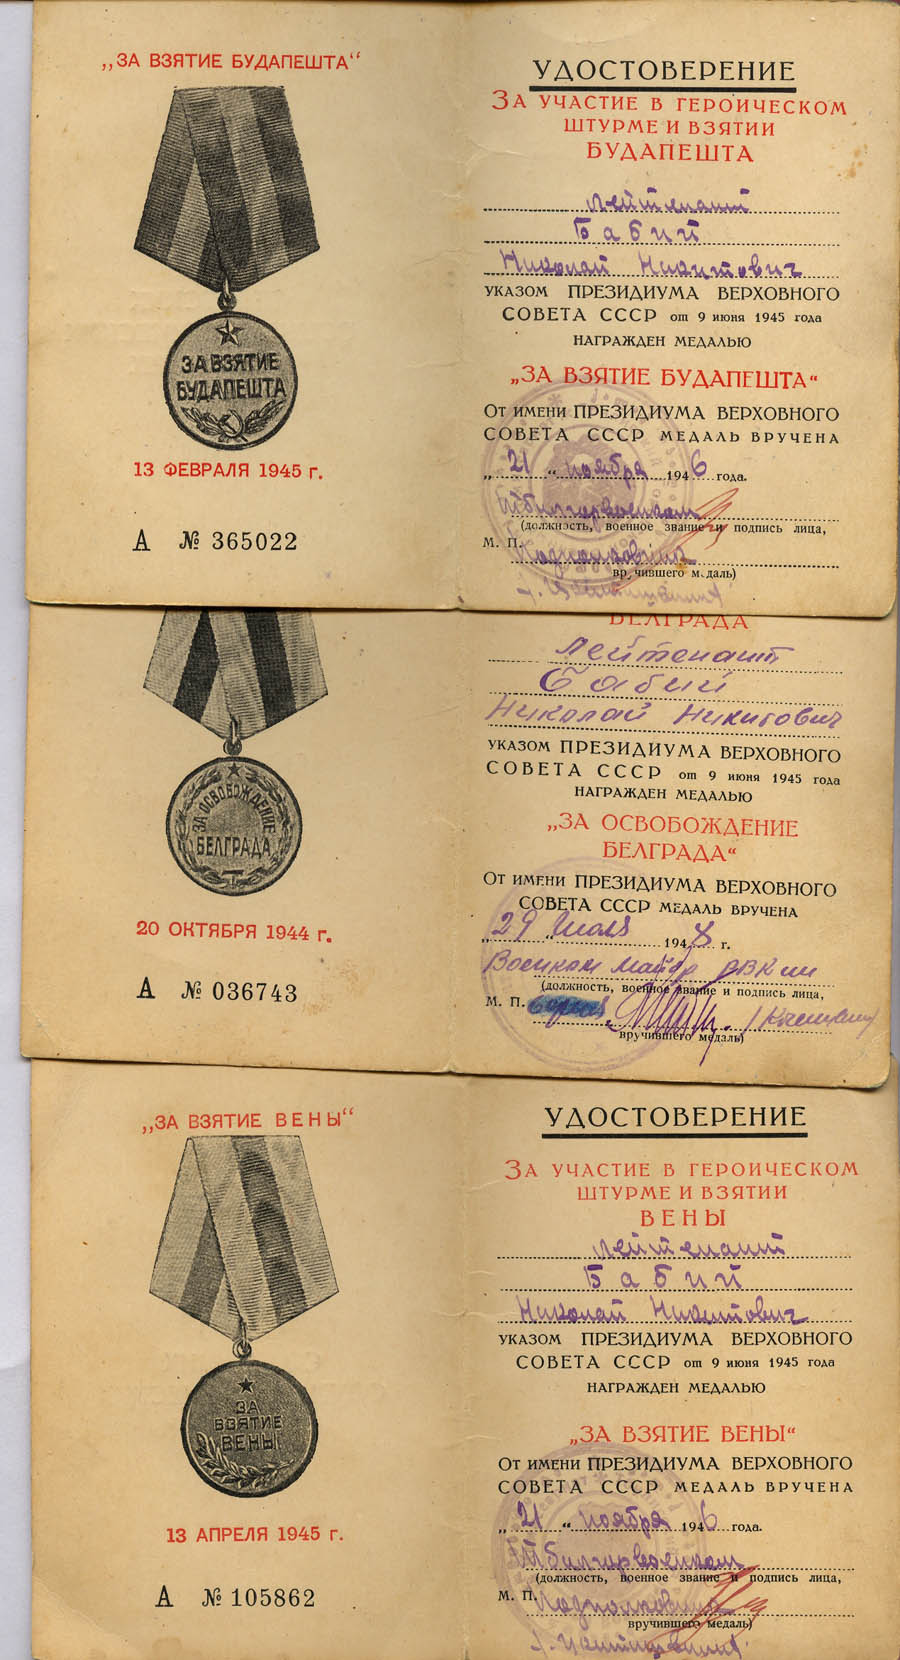 „ЗА ВЗЯТИЕ БУДАПЕШТА“
ЗА ВЗЯТИЕ
БУДАПЕШТА
13 ФЕВРАЛЯ 1945 г.
А № 365022
УДОСТОВЕРЕНИЕ
ЗА УЧАСТИЕ В ГЕРОИЧЕСКОМ
ШТУРМЕ И ВЗЯТИИ
БУДАПЕШТА
лейтенант
Бабий
Николай Никитович
УКАЗОМ ПРЕЗИДИУМА ВЕРХОВНОГО
СОВЕТА СССР от 9 июня 1945 года
НАГРАЖДЕН МЕДАЛЬЮ
„ЗА ВЗЯТИЕ БУДАПЕШТА“
От имени ПРЕЗИДИУМА ВЕРХОВНОГО
СОВЕТА СССР МЕДАЛЬ ВРУЧЕНА
„21“ ноября 1946 года.
Тбилгорвоенком
(должность, военное звание и подпись лица,
М. П. Подполковник
вручившего медаль)
ЗА ОСВОБОЖДЕНИЕ
БЕЛГРАДА
20 ОКТЯБРЯ 1944 г.
А № 036743
БЕЛГРАДА
Лейтенант
Бабий
Николай Никитович
УКАЗОМ ПРЕЗИДИУМА ВЕРХОВНОГО
СОВЕТА СССР от 9 июня 1945 года
НАГРАЖДЕН МЕДАЛЬЮ
„ЗА ОСВОБОЖДЕНИЕ
БЕЛГРАДА“
От имени ПРЕЗИДИУМА ВЕРХОВНОГО
СОВЕТА СССР МЕДАЛЬ ВРУЧЕНА
„29“ июля 1948 г.
Военком майор
(должность, военное звание и подпись лица,
М. П.
вручившего медаль)
„ЗА ВЗЯТИЕ ВЕНЫ“
ЗА
ВЗЯТИЕ
ВЕНЫ
13 АПРЕЛЯ 1945 г.
А № 105862
УДОСТОВЕРЕНИЕ
ЗА УЧАСТИЕ В ГЕРОИЧЕСКОМ
ШТУРМЕ И ВЗЯТИИ
ВЕНЫ
лейтенант
Бабий
Николай Никитович
УКАЗОМ ПРЕЗИДИУМА ВЕРХОВНОГО
СОВЕТА СССР от 9 июня 1945 года
НАГРАЖДЕН МЕДАЛЬЮ
„ЗА ВЗЯТИЕ ВЕНЫ“
От имени ПРЕЗИДИУМА ВЕРХОВНОГО
СОВЕТА СССР МЕДАЛЬ ВРУЧЕНА
„21“ ноября 1946 года.
Тбилгорвоенком
(должность, военное звание и подпись лица,
М. П. Подполковник
вручившего медаль)